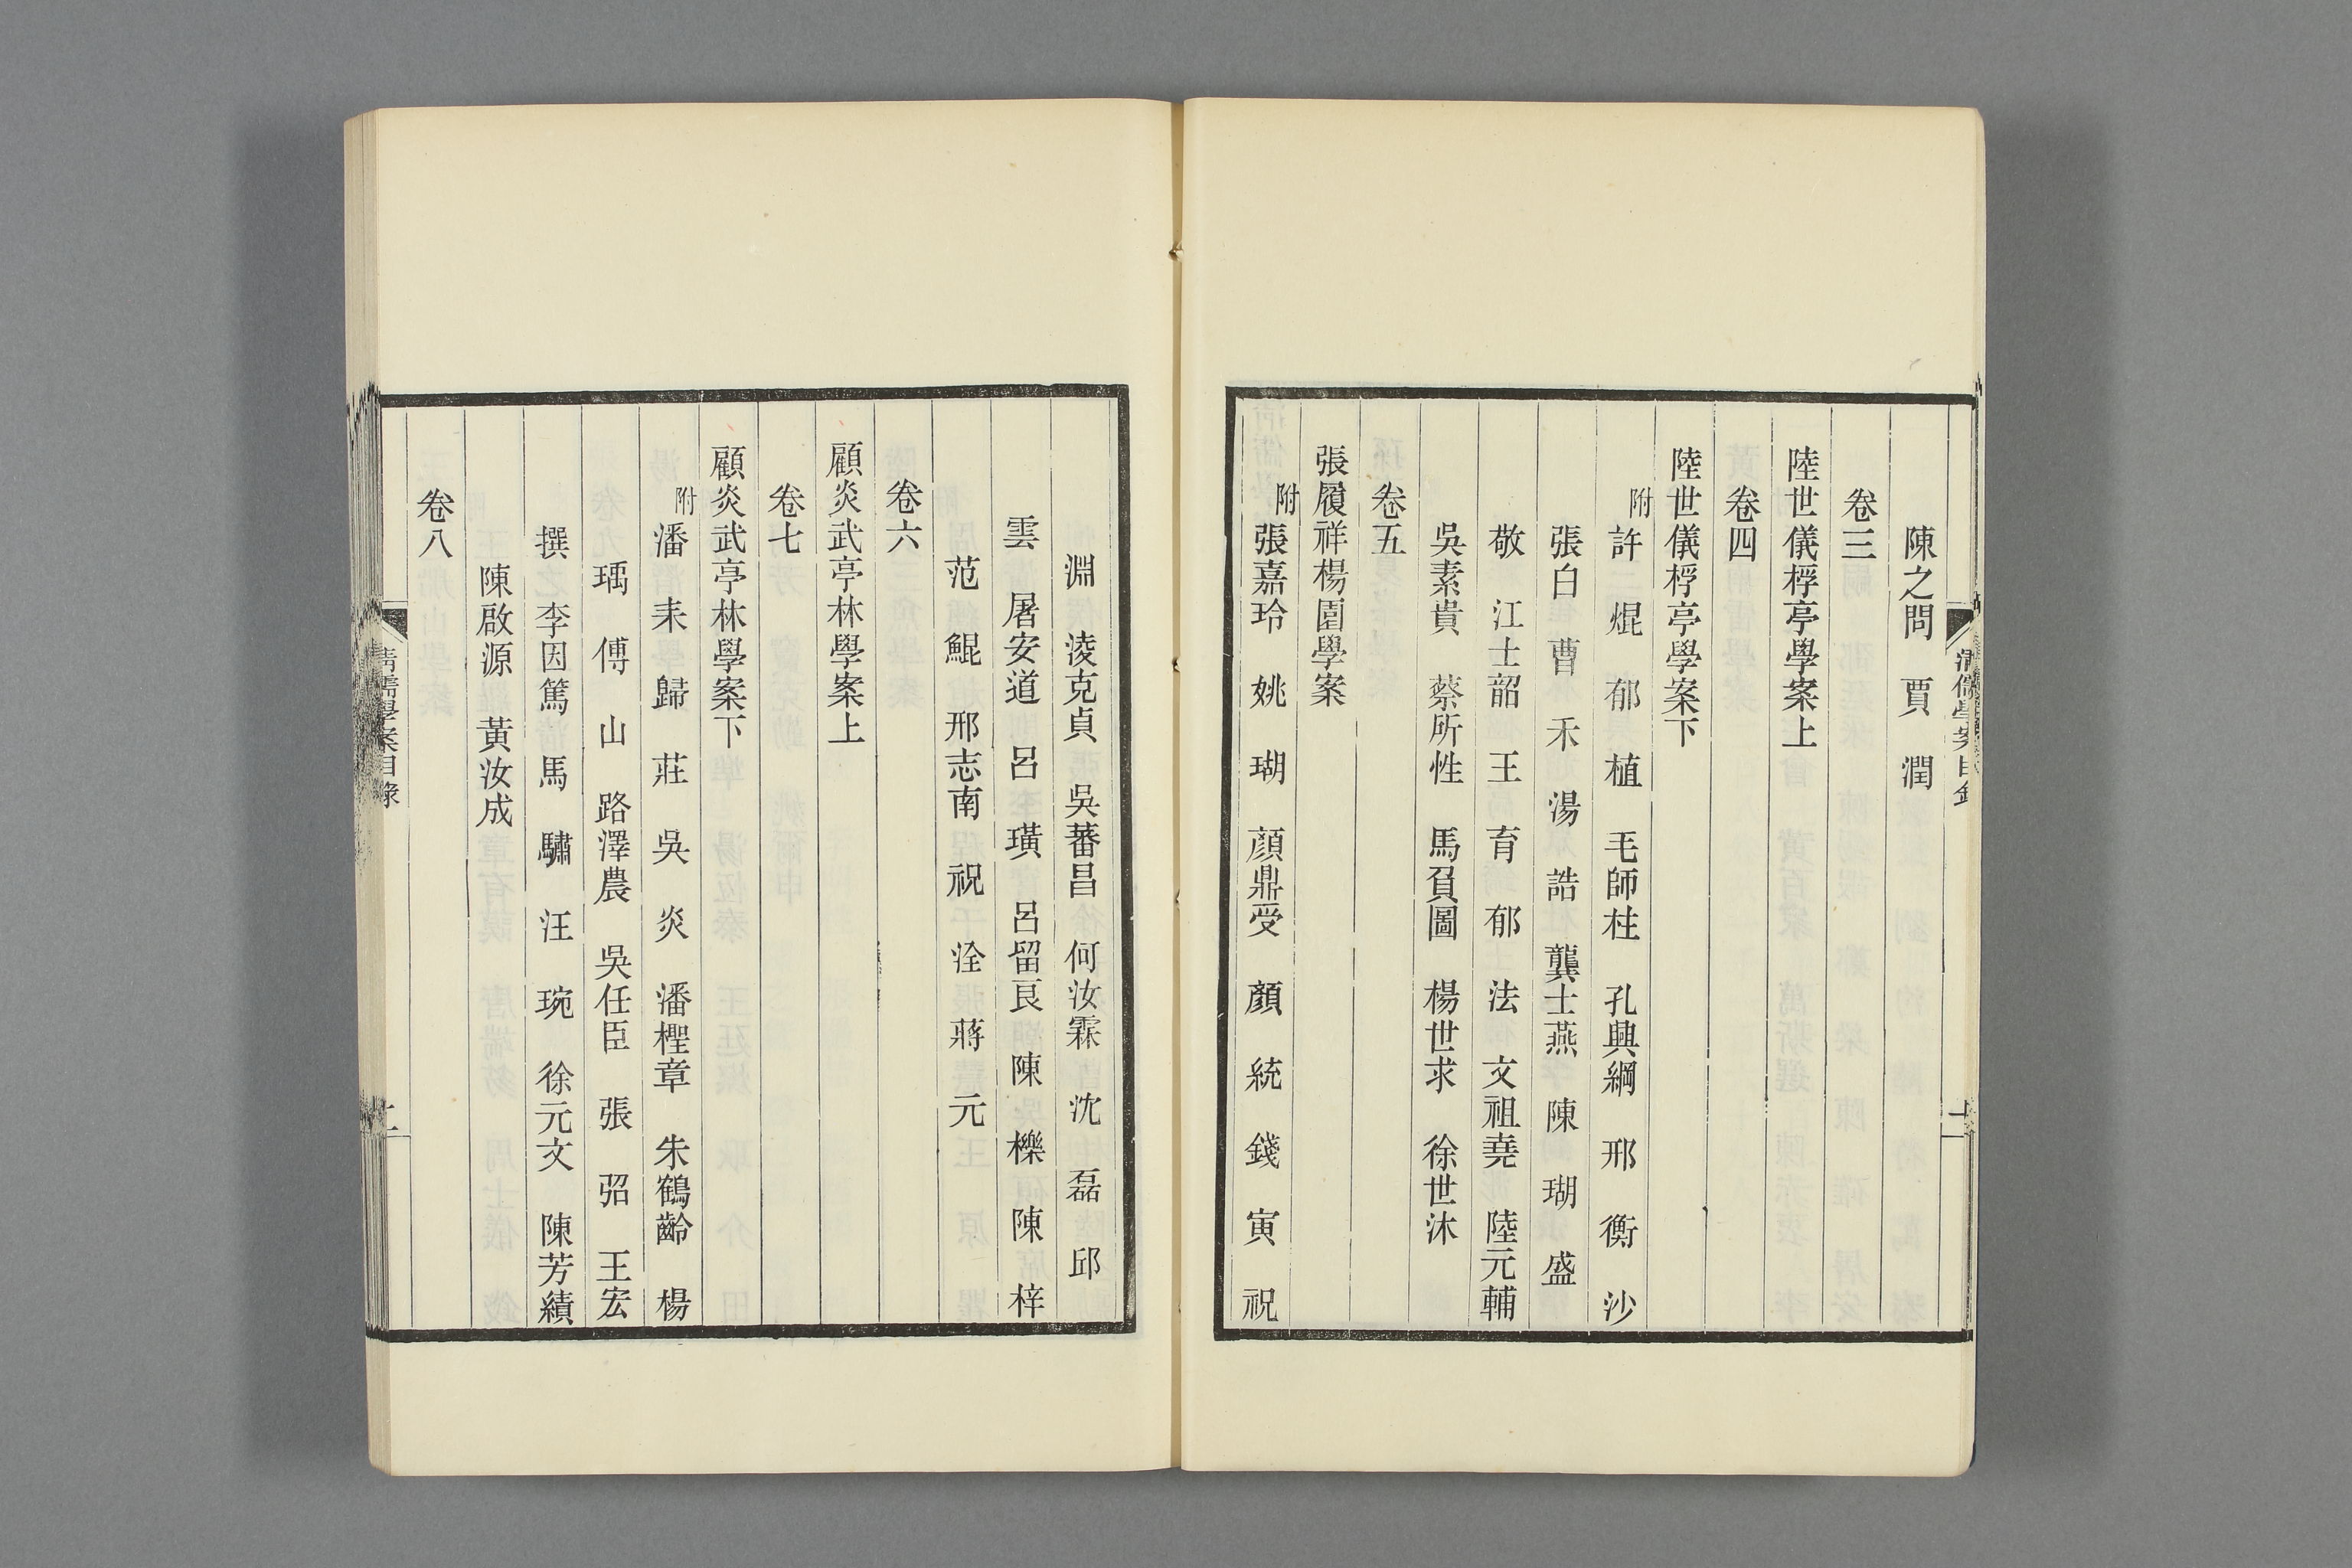 陳之問　賈　潤
卷三
陸世儀桴亭學案上
卷四
陸世儀桴亭學案下
附許　焜　郁　植　毛師柱　孔興綱　邢　衡　沙
張白　曹　禾　湯　誥　龔士燕　陳　瑚　盛
敬　江士韶　王　育　郁　法　文祖堯　陸元輔
吳素貴　蔡所性　馬負圖　楊世求　徐世沐
卷五
張履祥楊園學案
附張嘉玲　姚　瑚　顏鼎受　顏　統　錢　寅　祝
淵　淩克貞　吳蕃昌　何汝霖　沈　磊　邱
雲　屠安道　呂　璜　呂留良　陳　櫟　陳　梓
范　鯤　邢志南　祝　洤　蔣　元
卷六
顧炎武亭林學案上
卷七
顧炎武亭林學案下
附潘　耒　歸　莊　吳　炎　潘檉章　朱鶴齡　楊
瑀　傅　山　路澤農　吳任臣　張　弨　王宏
撰　李因篤　馬　驌　汪　琬　徐元文　陳芳績
陳啟源　黃汝成
卷八
清儒學案目錄